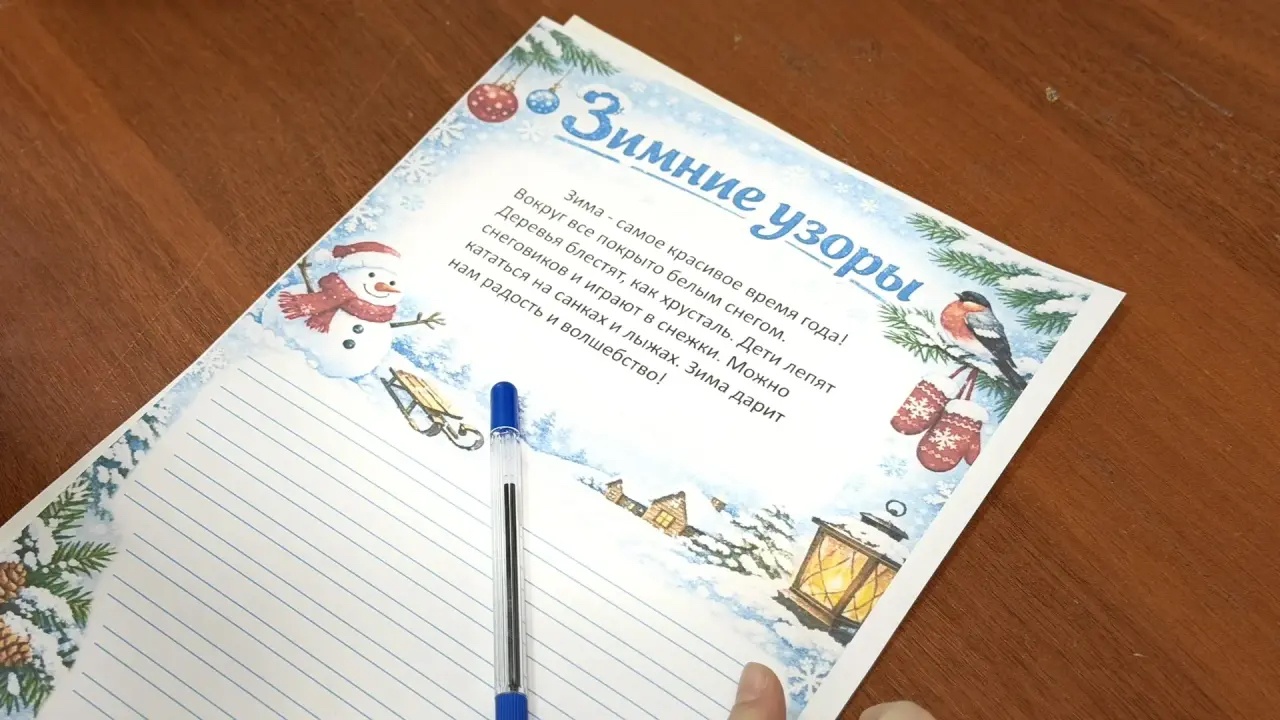 Зимние узоры
Зима - самое красивое время года!
Вокруг все покрыто белым снегом.
Деревья блестят, как хрусталь. Дети лепят
снеговиков и играют в снежки. Можно
кататься на санках и лыжах. Зима дарит
нам радость и волшебство!